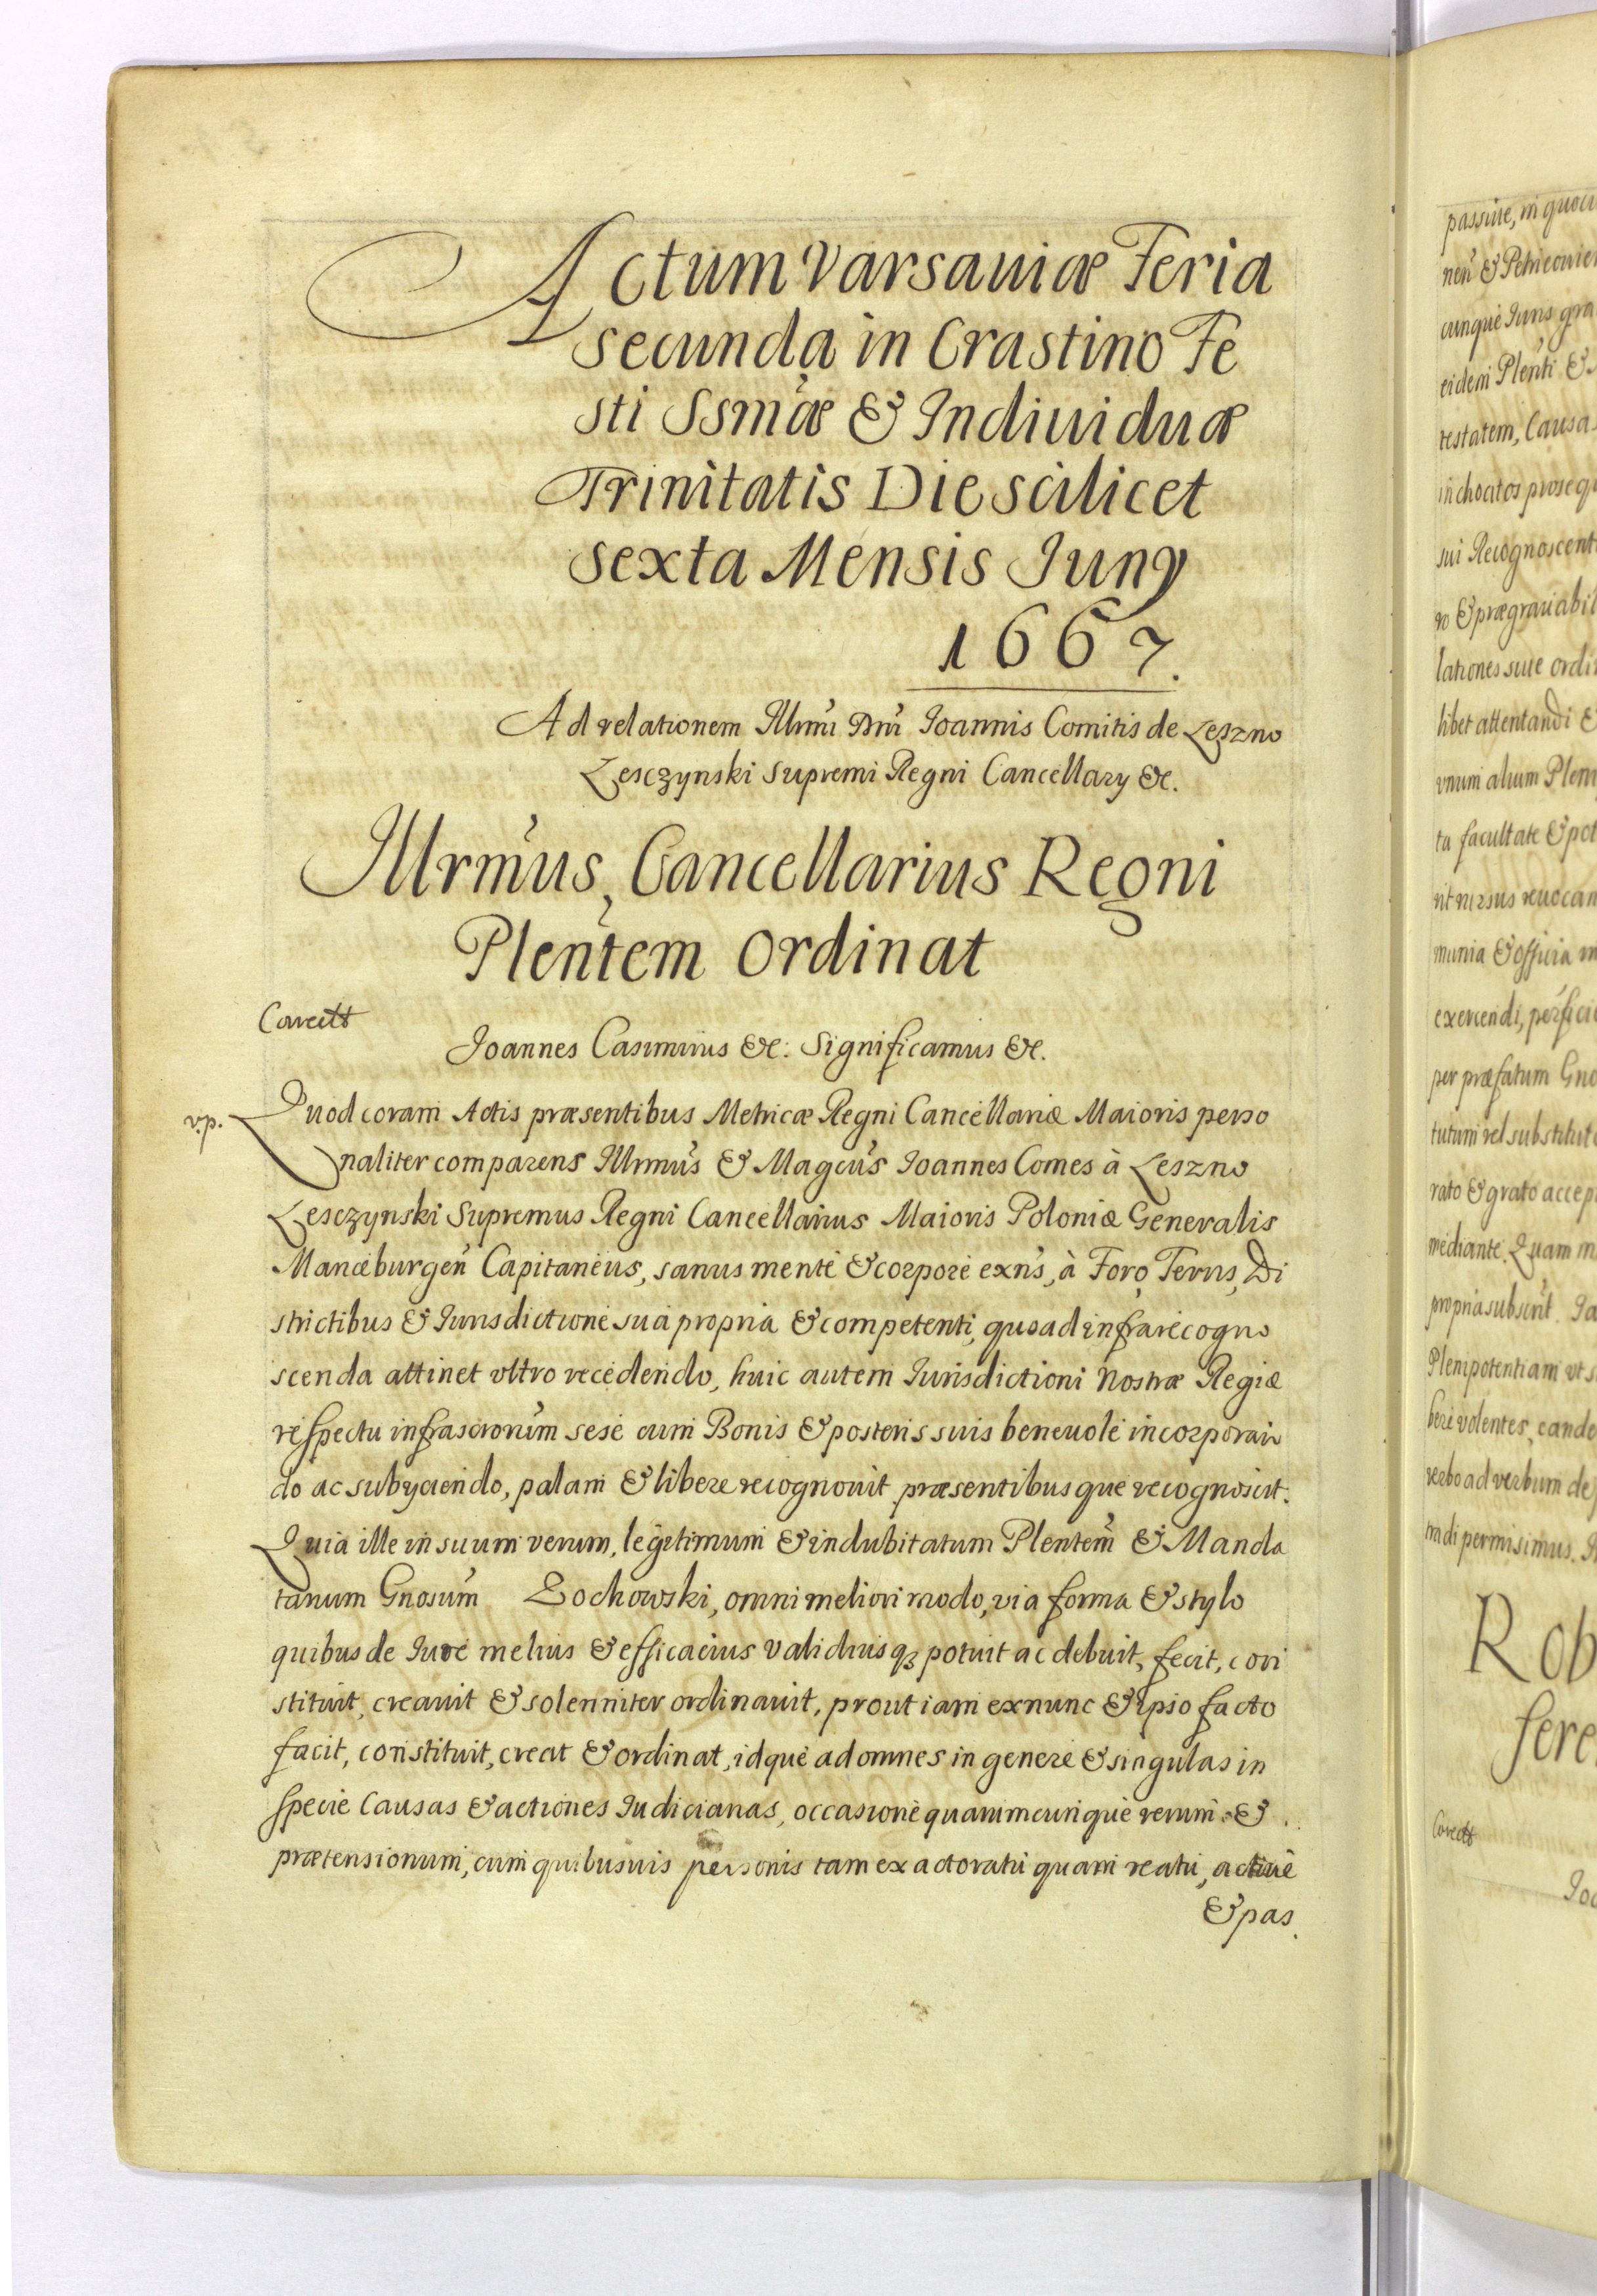 Actum Varsauiæ Feria
secunda in Crastino Fe
sti Ssmæ & Indiuiduæ
Trinitatis Die scilicet
sexta Mensis Juny
1667.
Ad relationem Illrmi Dni Ioannis Comitis de Leszno
Lesczynski Supremi Regni Cancellary &c.
Illrmus Cancellarius Regni
Plentem Ordinat
Correctt
Ioannes Casimirus &c: Significamus &c.
v.p.
Quod coram Actis præsentibus Metricæ Regni Cancellariæ Maioris perso
naliter comparens Illrmus & Magcus Ioannes Comes à Leszno
Lesczynski Supremus Regni Cancellarius Maioris Poloniæ Generalis
Marieburgen Capitaneus, sanus mente & corpore exns, à Foro Terris, Di
strictibus & Iurisdictione sua propria & competenti, quoad infra recogno
scenda attinet vltro recedendo, huic autem Iurisdictioni Nostræ Regiæ
respectu infrascrorum sese cum Bonis & posteris suis beneuole incorporan
do ac subyciendo, palam & libere recognouit præsentibusque recognoscit.
Quia ille in suum verum, legitimum & indubitatum Plentem & Manda
tarium Gnosum Zochowski, omni meliori modo, via forma & stylo
quibus de Iure melius & efficacius validiusq3 potuit ac debuit, fecit, con
stituit, creauit & solenniter ordinauit, prout iam exnunc & ipso facto
facit, constituit, creat & ordinat, idque ad omnes in genere & singulas in
specie Causas & actiones Iudiciarias, occasione quarumcunque rerum &
prætensionum, cum quibusuis personis tam ex actoratu quam reatu, actiue
& pas
passiue, in
nen & Petricouien
cunque Iuris gra
eidem Plenti &
testatem, Causas
inchoatos prosequ
sui Recognoscent
ro & prægrauabil
lationes siue ordi
libet attentandi &
vnum alium Pleni
ta facultate & pot
rit rursus reuocan
munia & officia
exercendi, perficie
per præfatum Gno
tutum vel substitut
rato & grato accep
mediante. Quam
propria subsunt. Ia
Plenipotentiam vt s
bere volentes, eande
verbo ad verbum de
tradi permisimus.
Rob
fere
Correctt
Ioa